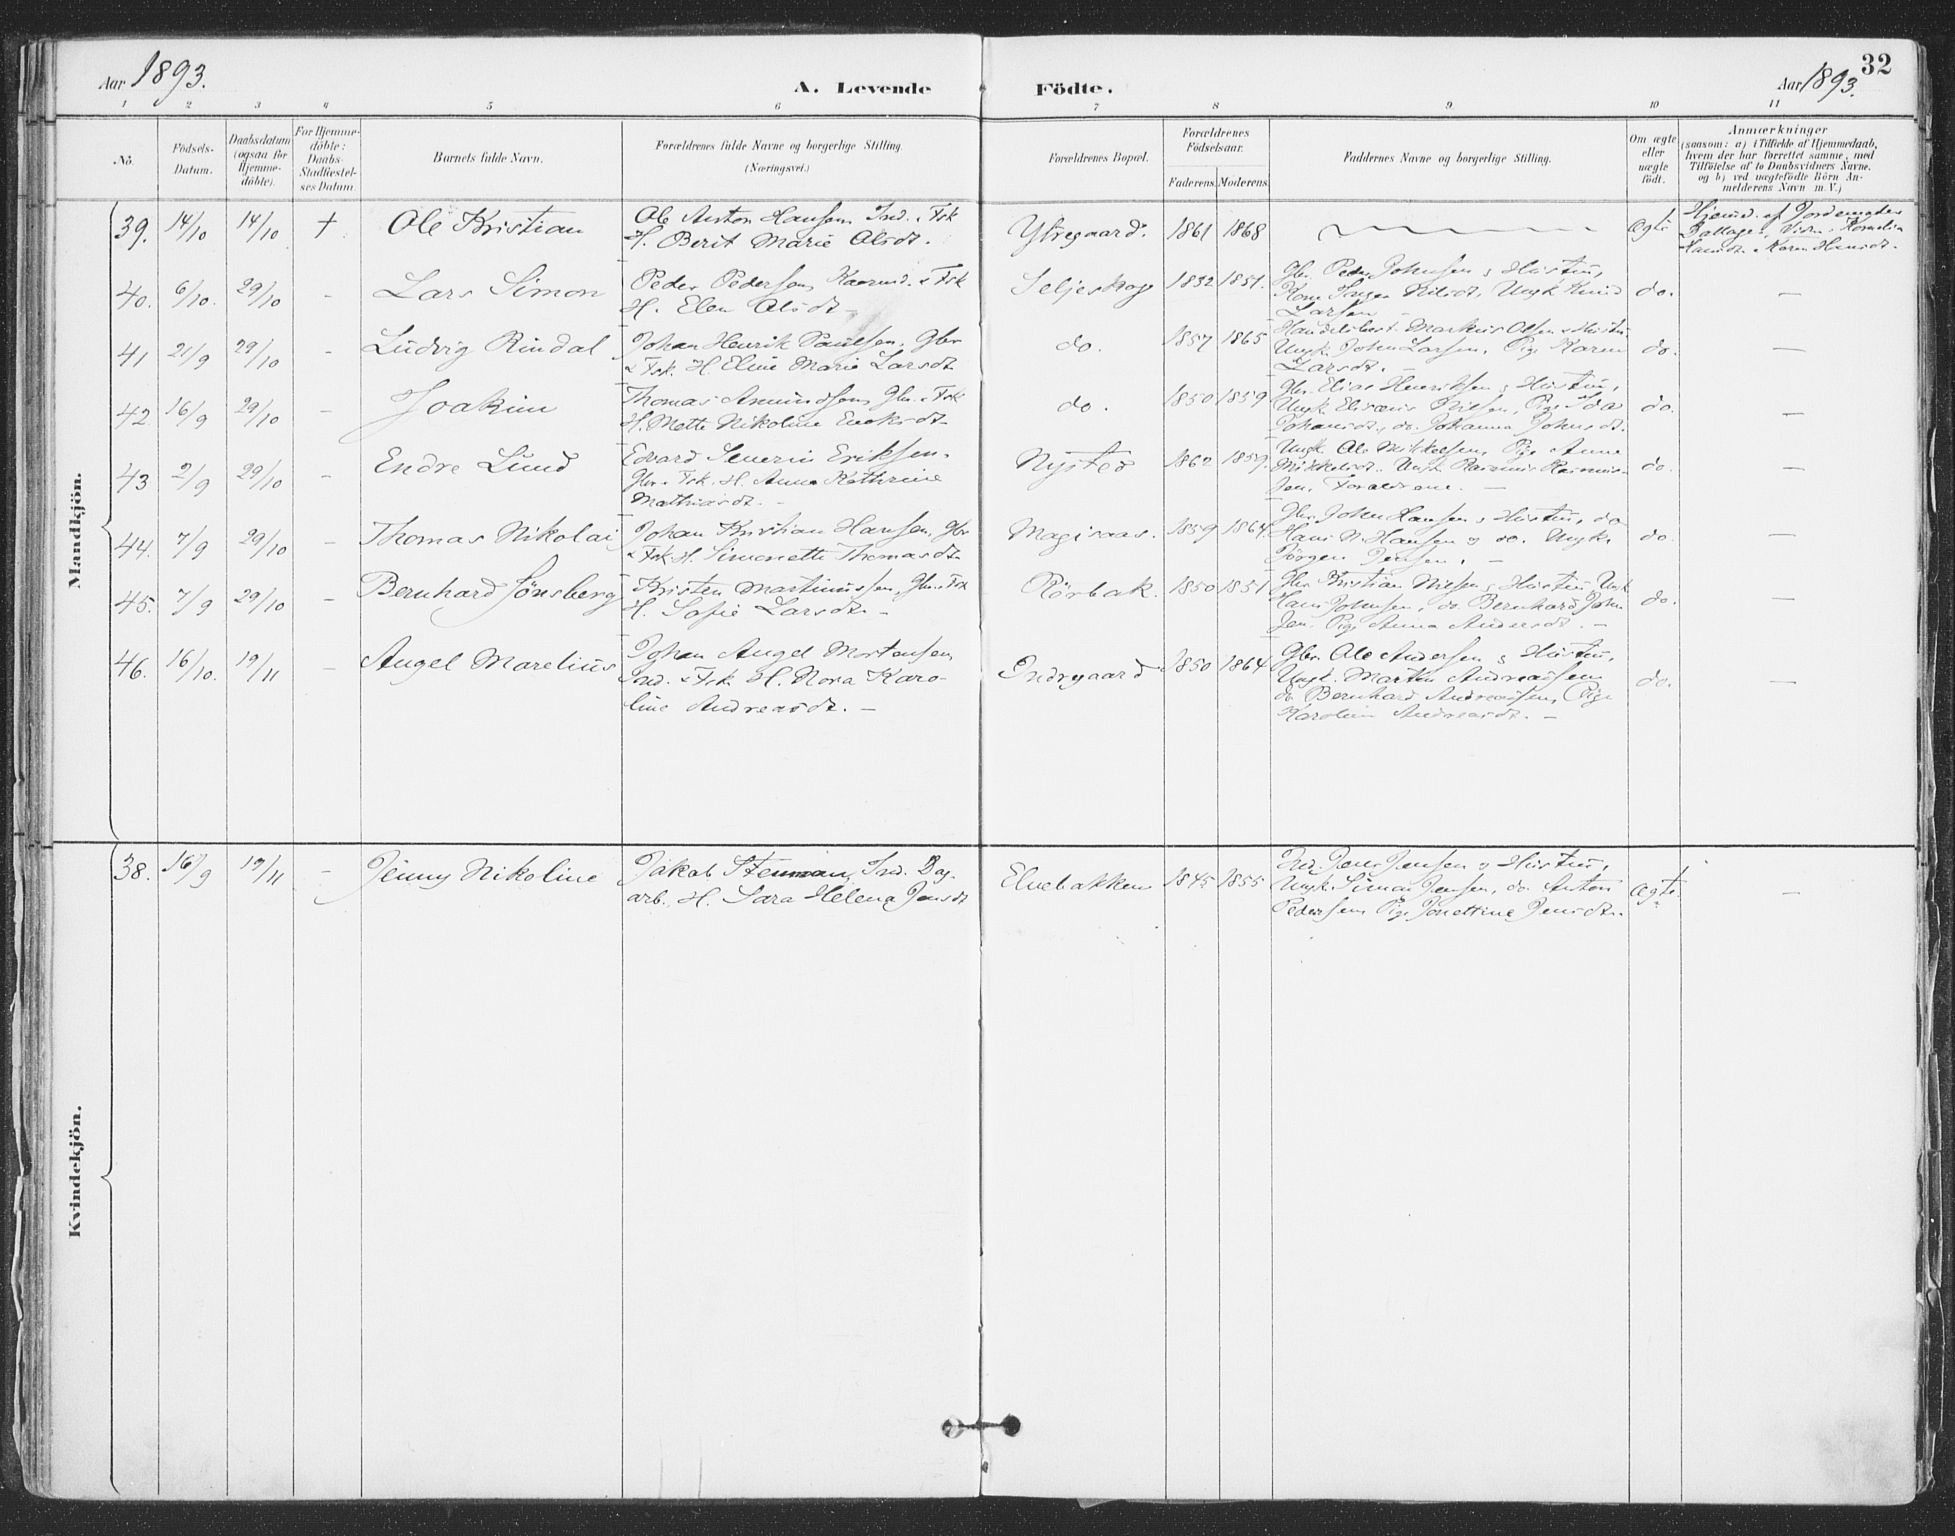 32
Aar 1893.
A. Levende Födte.
Aar 1893.
1 2 3 4 5 6 7 8 9 10 11
No. Födsels-Datum. Daabsdatum (ogsaa for Hjemme-döbte). For Hjemme-döbte: Daabs-Stadfæstel-ses Datum. Barnets fulde Navn. Forældrenes fulde Navne og borgerlige Stilling. (Næringsvei.) Forældrenes Bopæl. Forældrenes Födselsaar. Faderens. Moderens. Faddernes Navne og borgerlige Stilling. Om ægte eller uægte födt. Anmærkninger (saasom: a) i Tilfælde af Hjemmedaab, hvem der har forrettet samme, med Tilföielse af to Daabsvidners Navne. og b) ved uægtefödte Börn An-melderens Navn m. V.)
Mandkjön.
39. 14/10 14/10 + Ole Kristian Ole Anton Hansen, Ind. & Fsk Ytregaard. 1861 1868 Ægte Hjemd. af Jordemoder
H. Berit Marie Olsdt. Vidn. Kornelia
Hansdt. & Karen Hansdt.
40. 6/10. 29/10 - Lars Simon Peder Pedersen & Fsk Seljeskog 1832 1851. Gbr. Peder Johnsen & Hustru, do. —
H. Elen Olsdt — Kone Inger Nilsdt, Ungk Knud
Larsen —
41 21/9 29/10 - Ludvig Rindal Johan Henrik Paulsen, Gbr do. 1857 1865 Handelsbest. Markus Olsen & Hustru do. —
& Fsk. H Eline Marie Larsdt Ungk. John Larsen, Pige Karen
Larsdt. —
42. 16/9 29/10 - Joakim Thomas Amundsen, Gbr. & Fsk do. 1850 1859 Gbr. Elias Henriksen & Hustru, do. —
H. Mette Nikoline Enoksdt. Ungk. Nilsen, Pige Ida
Johansdt., do. Johanna Johnsdt.
43 2/9 29/10 - Endre Lund Edvard Severin Eriksen. Nysted 1862 1859. Ungk. Ole Mikkelsen, Pige Anne do. —
Gbr. & Fsk. H. Anna Kathrine Mikkelsdt. Ungk Rasmus Rasmus-
Mathiasdt. — sen, Forældrene. —
44. 7/9 29/10 - Thomas Nikolai Johan Kristian Hansen, Gbr 1859 1864 Gbr. John Hansen & Hustru, do do. —
& Fsk. H. Simonette Thomasdt. Hans N. Hansen og do. Ungk.
Jörgen Jensen. —
45. 7/9 29/10 - Bernhard Tönsberg Kristen Martinussen, Gbr. & Fsk Rörbak. 1850 1851 Gbr. Kristian Nilsen & Hustru, Ungk do. —
H. Sofie Larsdt. — Hans Johnsen, do. Bernhard John
sen, Pige Anna Andersdt. —
46. 16/10. 19/11 - Angel Marelius Johan Angel Mortensen, Indregaard 1850 1864 Gbr. Ole Andersen & Hustru, do. —
Ind. & Fsk. H. Nora Karo- Ungk. Martin Andreassen
line Andreasdt. — do Bernhard Andreassen, Pige
Karoline Andreasdt. —
Kvindekjön.
38. 16/9 19/11 - Jenny Nikoline Jakob Stenman, Ind. Dag. Elvebakken 1845 1855 Ind. Jens Jensen & Hustru, Ægte. —
arb. H. Sara Helena Jensdt Ungk. Simon Jensen, do. Anton
Pedersen, Pige Jonettine Jensdt.